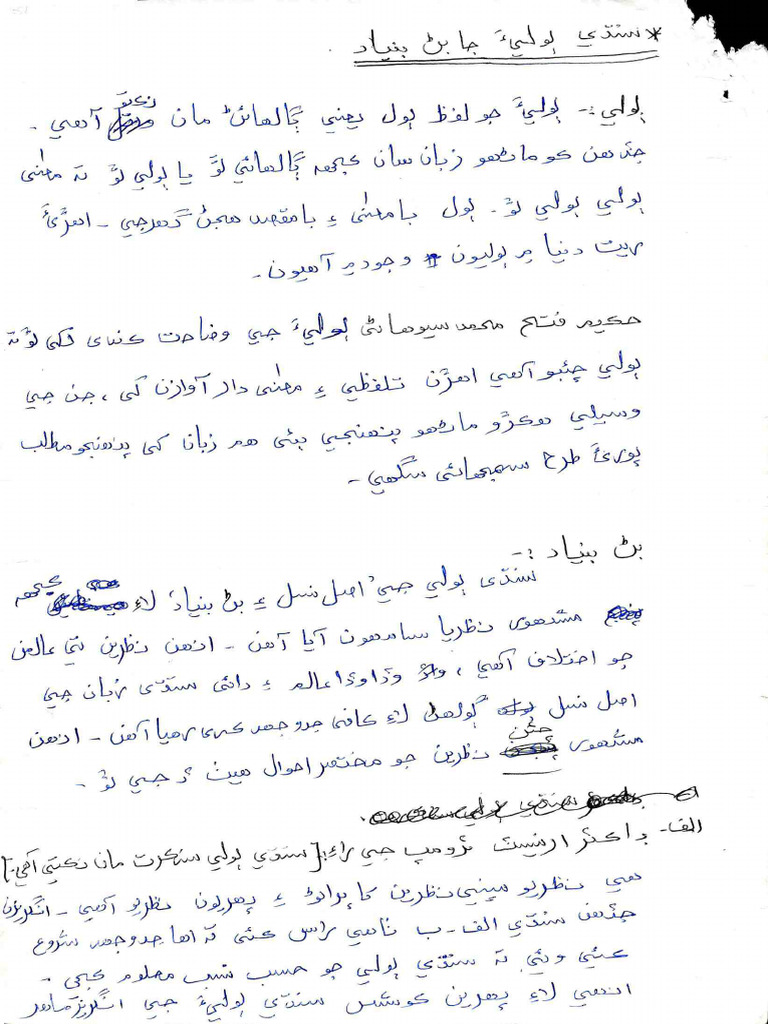 * سنڌي ٻوليءَ جا بڻ بنياد
ٻولي :- ٻوليءَ جو لفظ ٻول يعني ڳالهائڻ مان نڪتو آهي -
جڏهن ڪو ماڻهو زبان سان ڪجهه ڳالهائي ٿو يا ٻولي ٿو ته معنٰي
ٻولي ٻولي ٿو - ٻول بامعنٰي ۽ بامقصد هجڻ گهرجي - اهڙيءَ
ريت دنيا ۾ ٻوليون وجود ۾ آهيون -
حڪيم فتح محمد سيوهاڻي ٻوليءَ جي وضاحت ڪندي لکي ٿو ته
ٻولي چئبو آهي اهڙن تلفظي ۽ معنٰي دار آوازن کي ، جن جي
وسيلي هڪڙو ماڻهو پنهنجي ٻئي هم زبان کي پنهنجو مطلب
پوريءَ طرح سمجهائي سگهي -
بڻ بنياد :-
سنڌي ٻولي جي اصل نسل ۽ بڻ بنياد لاءِ ڪجهه
مشهور نظريا سامهون آيا آهن - انهن نظرين تي عالمن
جو اختلاف آهي ، وڏا وڏا عالم ۽ سنڌي زبان جي
اصل نسل ڳولهڻ لاءِ ڪافي جدوجهد ڪري رهيا آهن - انهن
مشهور چئن نظرين جو مختصر احوال هيٺ ڏجي ٿو -
الف- ڊاڪٽر ارنيسٽ ٽرومپ جي راءِ :- [سنڌي ٻولي سنسڪرت مان نڪتي آهي -]
هي نظريو سڀني نظرين کا پراڻو ۽ پهريون نظريو آهي - انگريزن
جڏهن سنڌي الف-ب ٺاهي راس ڪئي ته اها جدوجهد شروع
ڪئي وئي ته سنڌي ٻولي جو حسب نسب معلوم ڪجي -
انهي لاءِ پهرين ڪوشش سنڌي ٻوليءَ جي انگريز ماهر